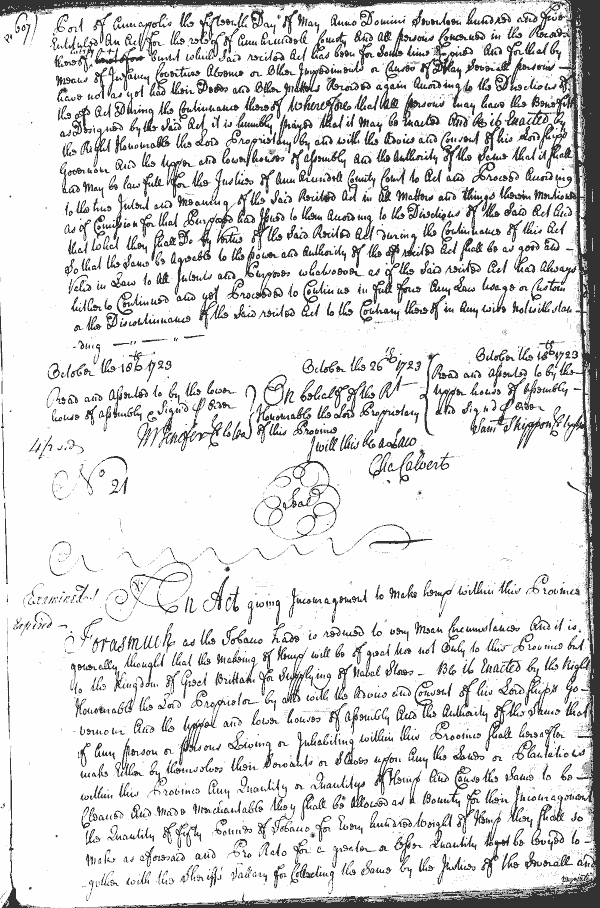 607
Port of Annapolis the fifteenth Day of May Anno Domini Seventeen hundred and five
Entituled An Act for the releif of Ann Arundell County And all persons Concerned in the Records
thereof burnt which Said recited Act has been for Some time Expired And for that by
Means of Infancy Coverture Absence or Other Impediments or Causes of Delay Severall persons
have not as yet had their Deeds and Other Matters Recorded again According to the Directions of
the sd Act During the Continuance thereof Wherefore that All persons may have the Benefit
as Designed by the Said Act, it is humbly prayed that it may be Enacted And Be it Enacted by
the Right Honourable the Lord Proprietary by and with the Advice and Consent of his Lordships
Governour And the Upper and Lower houses of Assembly And the Authority of the Same that it Shall
and May be lawfull for the Justices of Ann Arundell County Court to Act and Proceed According
to the true Intent and Meaning of the Said Recited Act in All Matters and things therein Mentioned
as if Comission for that Purpose had Issued to them According to the Directions of the Said Act And
that what they Shall Do by Virtue of the Said Recited Act during the Continuance of this Act
So that the Same be Agreable to the power and Authority of the sd recited Act Shall be as good and
Valid in Law to All Intents and Purposes whatsoever as if the Said recited Act had Always
hitherto Continued and yet Proceeded to Continue in full force Any Law Usage or Custom
or the Discontinuance of the Said recited Act to the Contrary thereof in Any wise notwithstan
ding
October the 18th 1723
Read and Assented to by the lower
house of Assembly Signd p Order
M Jenifer Cl lo ho
October the 26th 1723
On behalf of the Rt
Honourable the Lord Proprietary
of this Province
I will this be a Law
Cha Calvert
October the 18th 1723
Read and Assented to by the
Upper house of Assembly
and Signd p Order
Saml Skippon Cl up ho
No 21
Seal
Examined
Expired
An Act giving Incouragement to Make hemp within this Province
Forasmuch as the Tobacco Trade is reduced to very Mean Circumstances And it is
generally thought that the Makeing of Hemp will be of great Use not Only to this Province but
to the Kingdom of Great Brittain for Supplying of Naval Stores Be it Enacted by the Right
Honourable the Lord Proprietor by and with the Advice and Consent of his Lordships Go
vernour And the upper and lower houses of Assembly And the Authority of the Same that
if Any person or persons Living or Inhabiting within this Province Shall hereafter
make Either by themselves their Servants or Slaves upon Any the Lands or Plantations
within this Province Any Quantity or Quantitys of Hemp And Cause the Same to be
Cleaned And Made Merchantable they Shall be Allowed as a Bounty for their Incouragement
the Quantity of fifty Pounds of Tobacco for Every hundred weight of Hemp they Shall So
Make as aforesaid and Pro Rato for a greater or lesser Quantity to be Levyed to
gether with the Sheriffs Sallary for Collecting the Same by the Justices of the Severall and